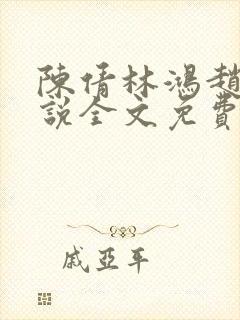 陳倩林鴻趙
說全文免費
戚亞平